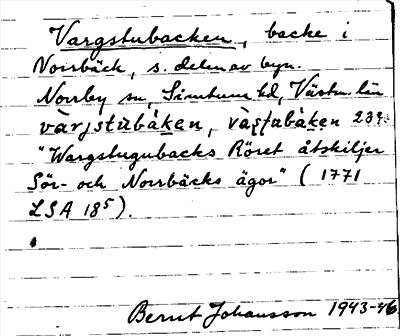 Vargstubacken, backe i
Norrbäck, s. delen av byn.
Norrby sn, Simtuna hd, Västm. län
"Wargstugubacks Röret åtskiljer
Sör- och Norrbäcks ägor" (1771
LSA 18⁵).
Bernt Johansson 1943-46